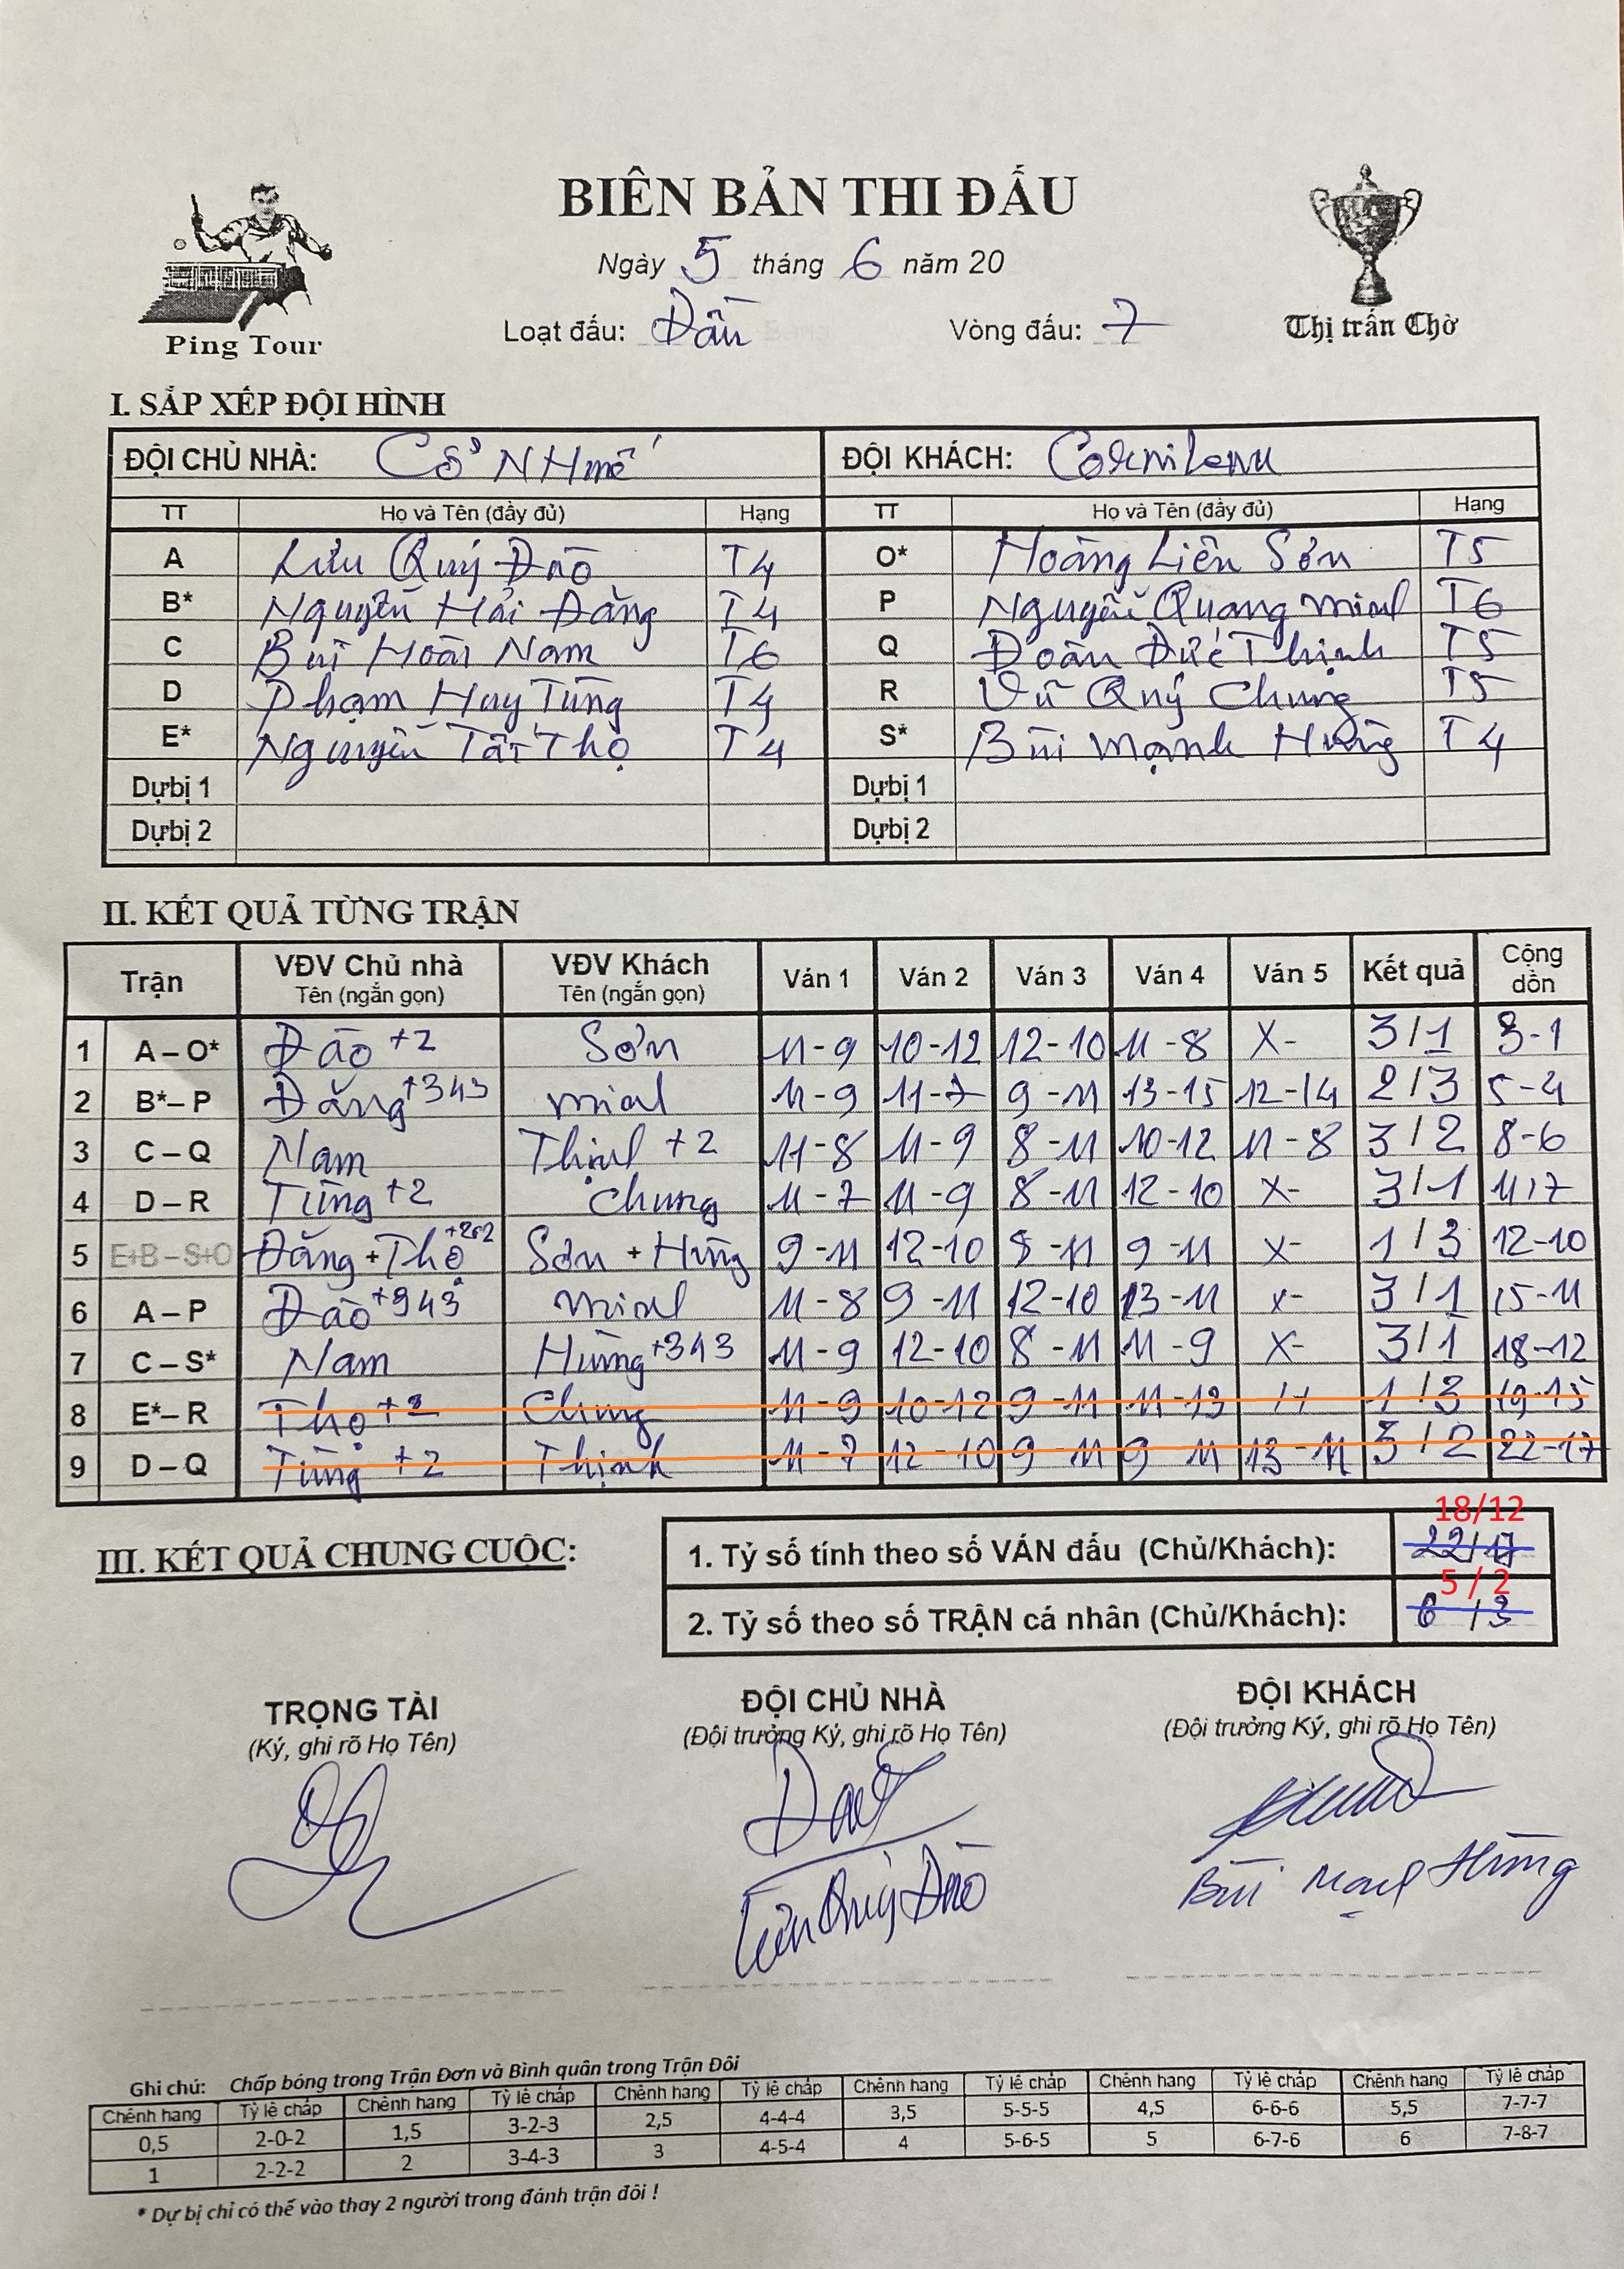 BIÊN BẢN THI ĐẤU
Ngày 5 tháng 6 năm 20
Loạt đấu: Đấu Vòng đấu: 7
Ping Tour
Thị trấn Chờ
I. SẮP XẾP ĐỘI HÌNH
ĐỘI CHỦ NHÀ: Cổ Nhuế ĐỘI KHÁCH:
TT Họ và Tên (đầy đủ) Hạng TT Họ và Tên (đầy đủ) Hạng
A Lưu Quý Đào T4 O* Hoàng Liên Sơn T5
B* Nguyễn Hải Đăng T4 P Nguyễn Quang Minh T6
C Bùi Hoài Nam T6 Q Đoàn Đức Thịnh T5
D Phạm Huy Tùng T4 R Vũ Quý Chung T5
E* Nguyễn Tất Thọ T4 S* Bùi Mạnh Hùng T4
Dự bị 1 Dự bị 1
Dự bị 2 Dự bị 2
II. KẾT QUẢ TỪNG TRẬN
Trận VĐV Chủ nhà Tên (ngắn gọn) VĐV Khách Tên (ngắn gọn) Ván 1 Ván 2 Ván 3 Ván 4 Ván 5 Kết quả Cộng dồn
1 A – O* Đào +2 Sơn 11-9 10-12 12-10 11-8 X- 3/1 3-1
2 B* – P Đăng +343 Minh 11-9 11-7 9-11 13-15 12-14 2/3 5-4
3 C – Q Nam Thịnh +2 11-8 11-9 8-11 10-12 11-8 3/2 8-6
4 D – R Tùng +2 Chung 11-7 11-9 8-11 12-10 X- 3/1 11-7
5 E+B – S+O Đăng + Thọ +202 Sơn + Hùng 9-11 12-10 8-11 9-11 X- 1/3 12-10
6 A – P Đào +343 Minh 11-8 9-11 12-10 13-11 X- 3/1 15-11
7 C – S* Nam Hùng +343 11-9 12-10 8-11 11-9 X- 3/1 18-12
8 E* – R Thọ +2 Chung 11-9 10-12 9-11 11-13 1/3 19-15
9 D – Q Tùng +2 Thịnh 11-7 12-10 9-11 9-11 13-11 3/2 22-17
III. KẾT QUẢ CHUNG CUỘC:
18/12
1. Tỷ số tính theo số VÁN đấu (Chủ/Khách): 22/17
5 / 2
2. Tỷ số theo số TRẬN cá nhân (Chủ/Khách): 6/3
TRỌNG TÀI ĐỘI CHỦ NHÀ ĐỘI KHÁCH
(Ký, ghi rõ Họ Tên) (Đội trưởng Ký, ghi rõ Họ Tên) (Đội trưởng Ký, ghi rõ Họ Tên)
Lưu Quý Đào Bùi Mạnh Hùng
Ghi chú: Chấp bóng trong Trận Đơn và Bình quân trong Trận Đôi
Chênh hạng Tỷ lệ chấp Chênh hạng Tỷ lệ chấp Chênh hạng Tỷ lệ chấp Chênh hạng Tỷ lệ chấp Chênh hạng Tỷ lệ chấp Chênh hạng Tỷ lệ chấp
0,5 2-0-2 1,5 3-2-3 2,5 4-4-4 3,5 5-5-5 4,5 6-6-6 5,5 7-7-7
1 2-2-2 2 3-4-3 3 4-5-4 4 5-6-5 5 6-7-6 6 7-8-7
* Dự bị chỉ có thể vào thay 2 người trong đánh trận đôi !